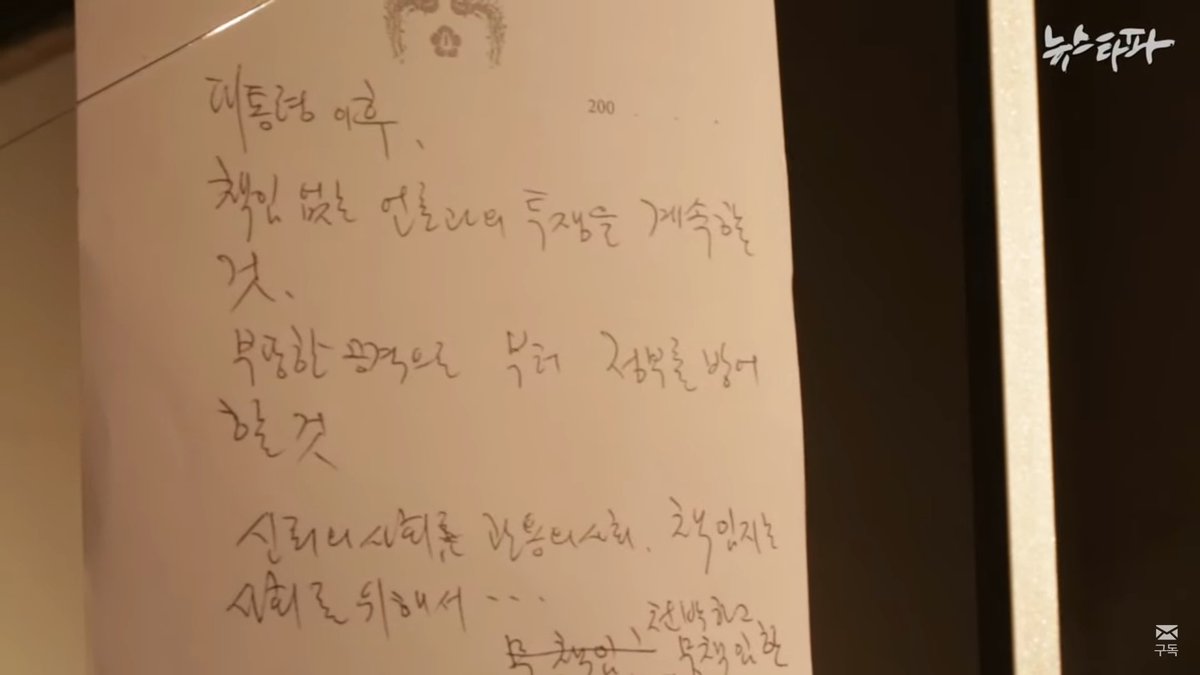 뉴스타파
200 . . . .
대통령 이후,
책임 없는 언론과의 투쟁을 계속할
것.
부당한 공격으로 부터 정부를 방어
할 것
신뢰의 사회, 관용의 사회, 책임지는
사회를 위해서 ...
천박하고
무책임한
구독